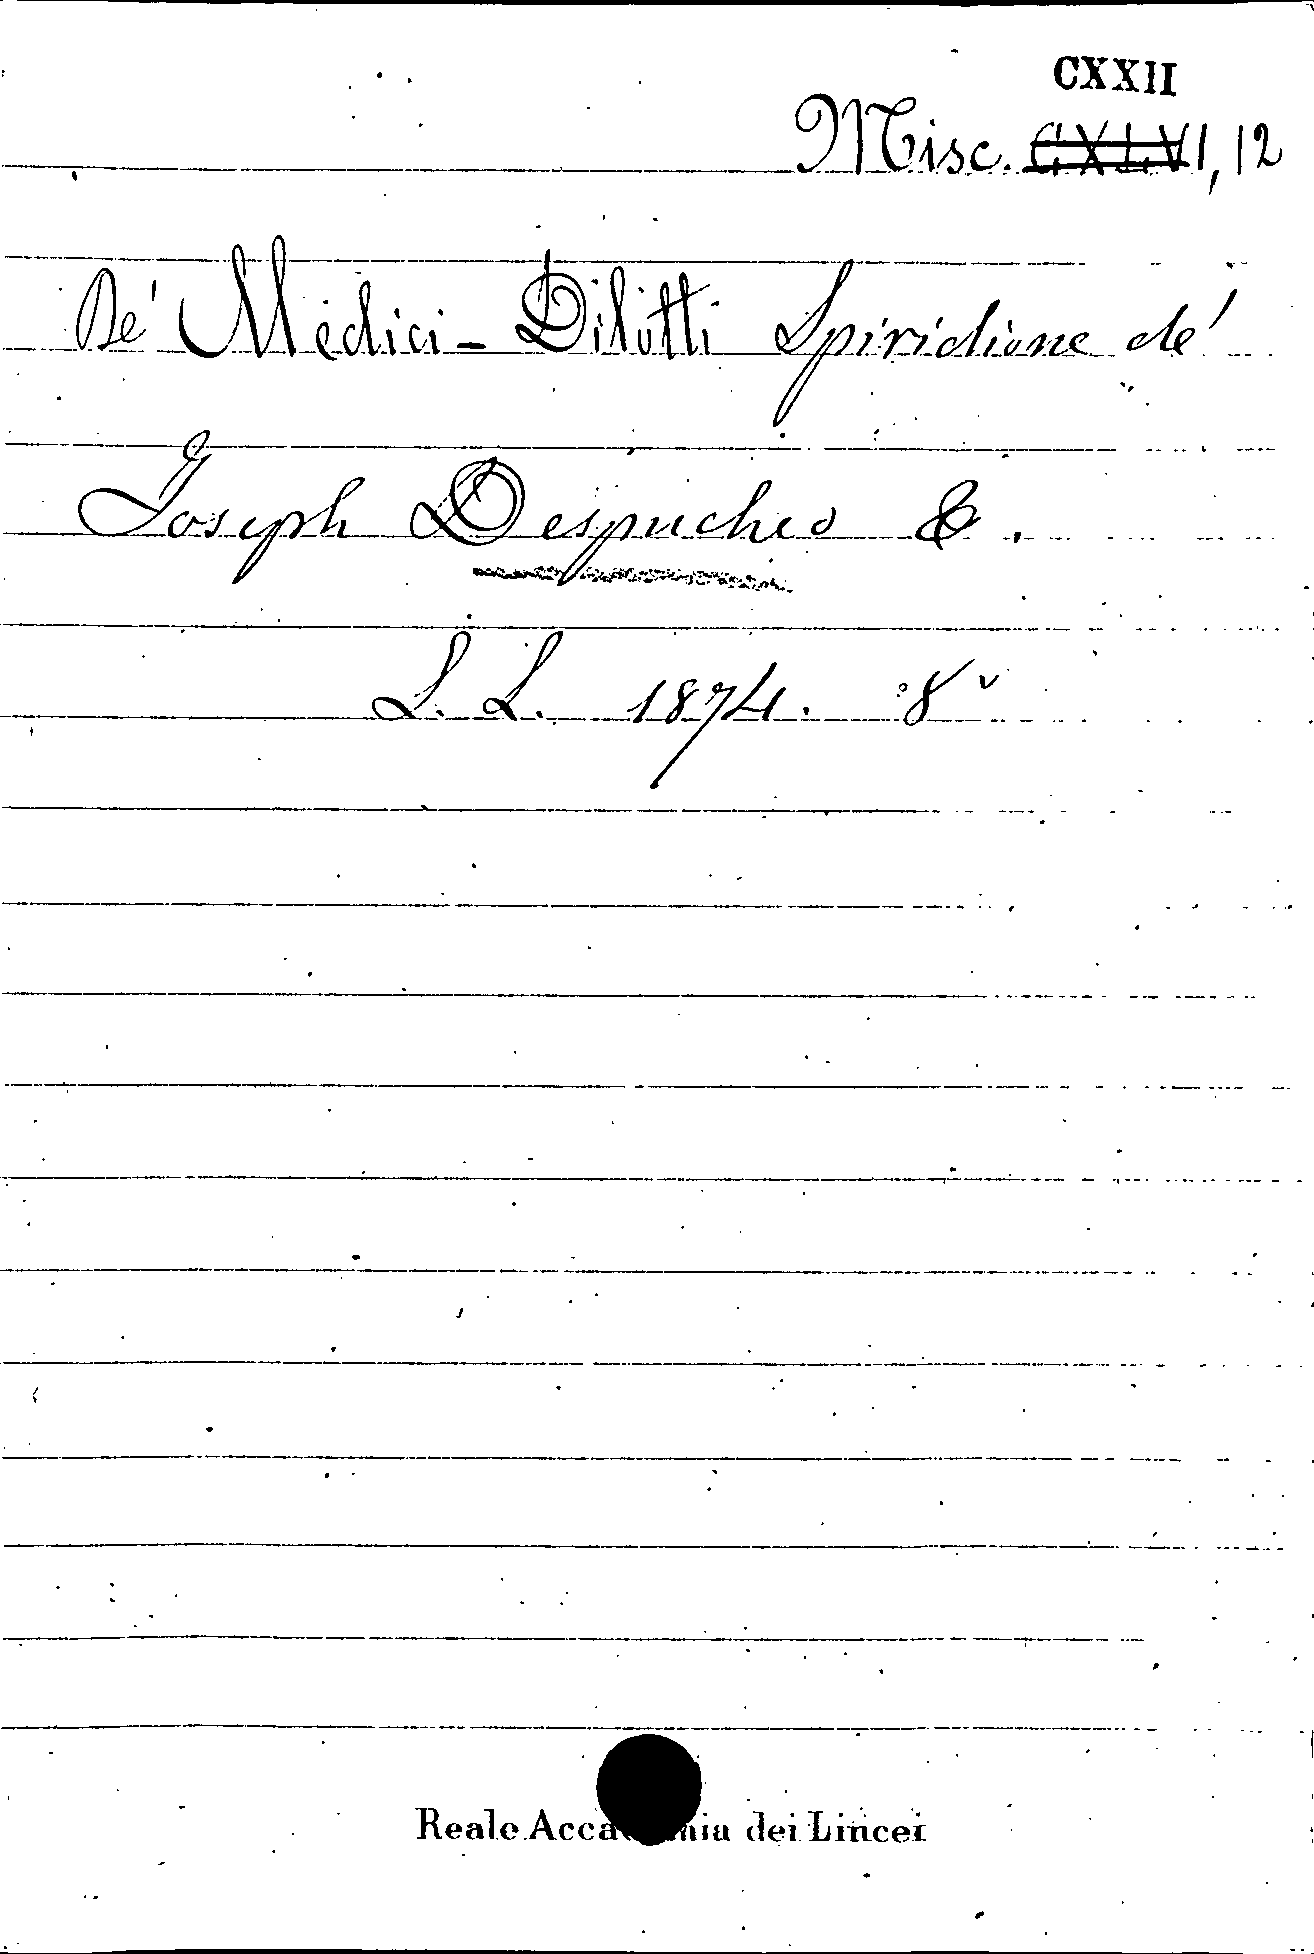 CXXII
Misc. CXLVI, 12
De' Medici - Dilotti Spiridione de'
Joseph Despuches &.
S. L. 1874. 8°
Reale Accademia dei Lincei